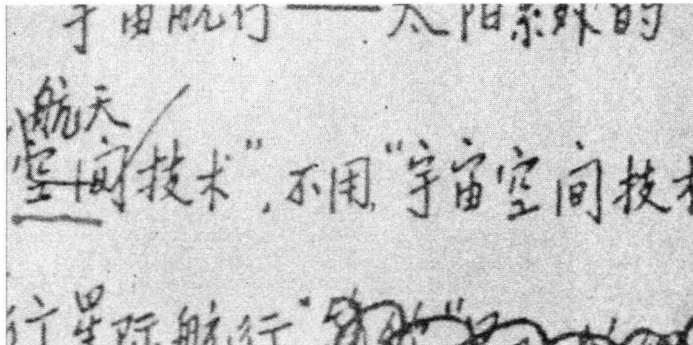 宇宙航行——太阳系外的
航天
空间技术”,不用“宇宙空间技术
行星际航行”